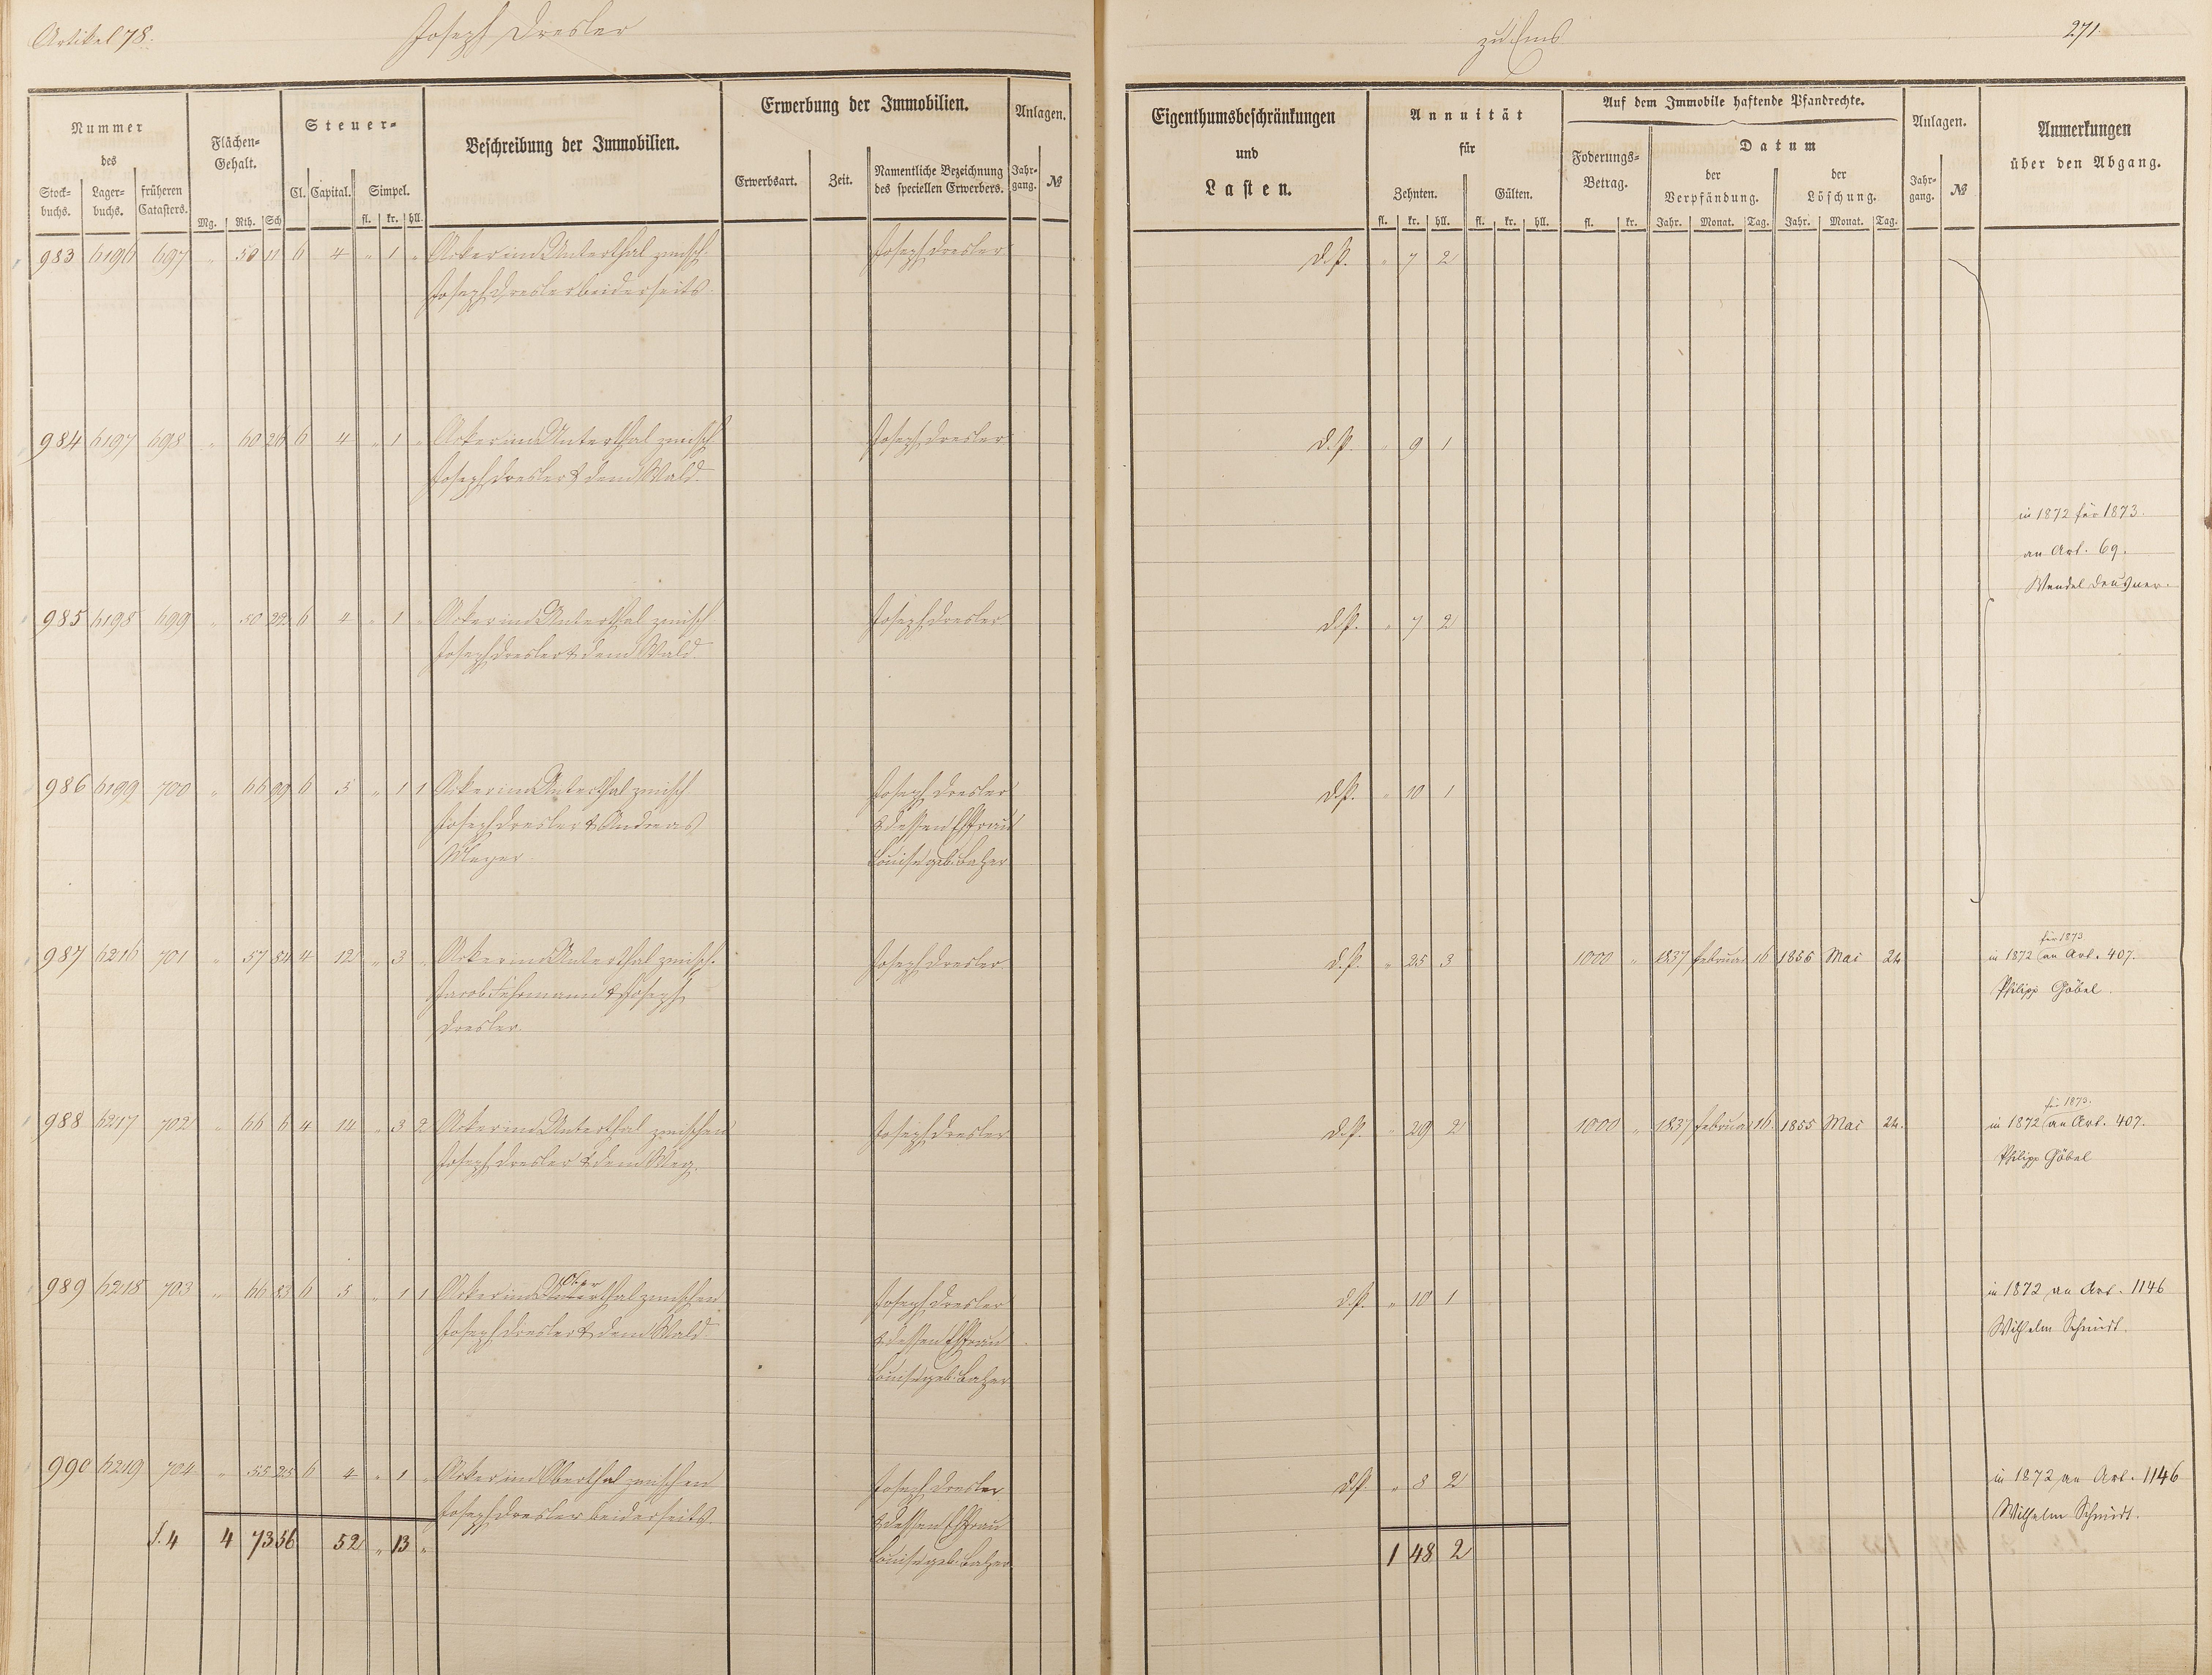 Artikel 78.
Joseph Dresler
zu Ems
271.
Nummer
des
Stock-
buchs.
Lager-
buchs.
früheren
Catasters.
Flächen-
Gehalt.
Mg. Rth. Sch
Steuer-
Cl. Capital. Simpel.
fl. kr. hll.
Beschreibung der Immobilien.
Erwerbung der Immobilien.
Erwerbsart. Zeit.
Namentliche Bezeichnung
des speciellen Erwerbers.
Anlagen.
Jahr-
gang.
№
Eigenthumsbeschränkungen
und
Lasten.
Annuität
für
Zehnten. Gülten.
fl. kr. hll. fl. kr. hll.
Auf dem Immobile haftende Pfandrechte.
Foderungs-
Betrag.
fl. kr.
Datum
der
Verpfändung.
Jahr. Monat. Tag.
der
Löschung.
Jahr. Monat. Tag.
Anlagen.
Jahr-
gang.
№
Anmerkungen
über den Abgang.
983 6196 697 " 50 11 6 4 " 1 " Acker im Unterthal zwisch. Joseph Dresler d. P. " 7 2
Joseph Dresler beiderseits
984 6197 698 " 60 26 6 4 " 1 " Acker im Unterthal zwisch Joseph Dresler d. P. " 9 1
Joseph Dresler & dem Wald.
in 1872 für 1873.
an Art. 69.
Wendel
985 6198 699 " 50 22 6 4 " 1 " Acker im Unterthal zwisch Joseph Dresler d. P. " 7 2
Joseph Dresler & dem Wald
986 6199 700 " 66 99 6 5 " 1 1 Acker im Unterthal zwisch Joseph Dresler d. P. " 10 1
Joseph Dresler & Andreas & dessen Ehfrau
Meyer Louise geb. Balzer
987 6216 701 " 57 54 4 12 " 3 " Acker im Unterthal zwisch. Joseph Dresler d. P. " 25 3 1000 " 1837 Februar 16 1856 Mai 24 in 1872 für 1873 an Art. 407.
Jacob Fuhrmann & Joseph Philipp Göbel.
Dresler
988 6217 702 " 66 6 4 14 " 3 2 Acker im Unterthal zwischen Joseph Dresler d. P. " 29 2 1000 " 1837 Februar 16. 1855 Mai 24. in 1872 für 1873. an Art. 407.
Joseph Dresler & dem Weg. Philipp Göbel
989 6218 703 " 66 83 6 5 " 1 1 Acker im Oberthal zwischen Joseph Dresler d. P. " 10 1 in 1872 an Art. 1146
Joseph Dresler & dem Wald & dessen Ehfrau Wilhelm Schmidt.
Louise geb. Balzer
990 6219 704 " 55 25 6 4 " 1 " Acker im Oberthal zwischen Joseph Dresler d. P. " 8 2 in 1872 an Art. 1146
Joseph Dresler beiderseits & dessen Ehfrau Wilhelm Schmidt.
Louise geb. Balzer
S. 4 4 73 56 52 " 13 " 1 48 2